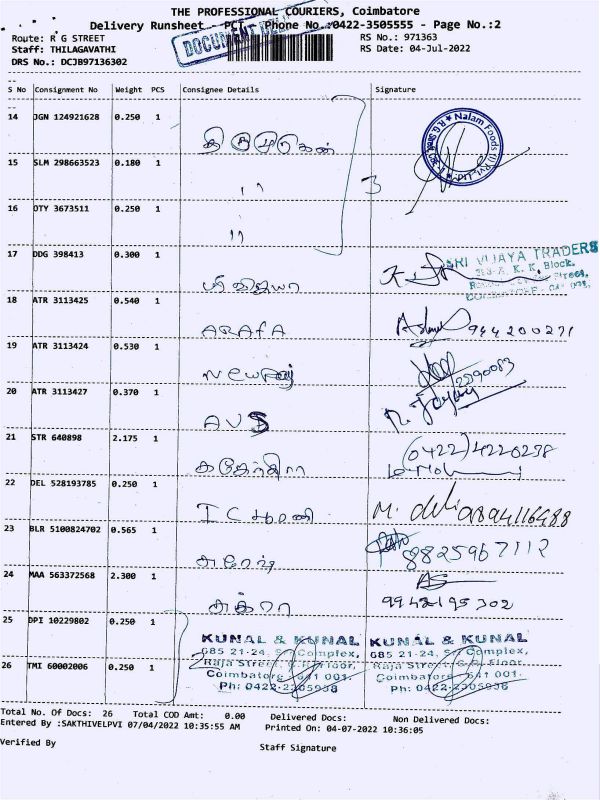 THE PROFESSIONAL COURIERS, Coimbatore
Delivery Runsheet - PCT, Phone No.:0422-3505555 - Page No.:2
Route: R G STREET
RS No.: 971363
Staff: THILAGAVATHI
RS Date: 04-Jul-2022
DRS No.: DCJB97136302
DOCUMENT
S No Consignment No Weight PCS Consignee Details Signature
14 JGN 124921628 0.250 1
Nalam Foods (I) Pvt. Ltd.
15 SLM 298663523 0.180 1 11
3
16 OTY 3673511 0.250 1 11
17 DDG 398413 0.300 1 ஸ்ரீ விஜயா
SRI VIJAYA TRADERS
K. K. Block,
18 ATR 3113425 0.540 1 ARAFA
19 ATR 3113424 0.530 1
20 ATR 3113427 0.370 1 AVS
21 STR 640898 2.175 1 (0422)4220238
22 DEL 528193785 0.250 1
23 BLR 5100824702 0.565 1 8825967112
24 MAA 563372568 2.300 1 9942195302
25 DPI 10229802 0.250 1
KUNAL & KUNAL KUNAL & KUNAL
685 21-24, Complex, 685 21-24, Complex,
Raja Street, Floor, Raja Street, Floor,
26 TMI 60002006 0.250 1
Coimbatore 641 001. Coimbatore 641 001.
Ph: 0422-2305938 Ph: 0422-2305938
Total No. Of Docs: 26 Total COD Amt: 0.00 Delivered Docs: Non Delivered Docs:
Entered By :SAKTHIVELPVI 07/04/2022 10:35:55 AM Printed On: 04-07-2022 10:36:05
Verified By
Staff Signature